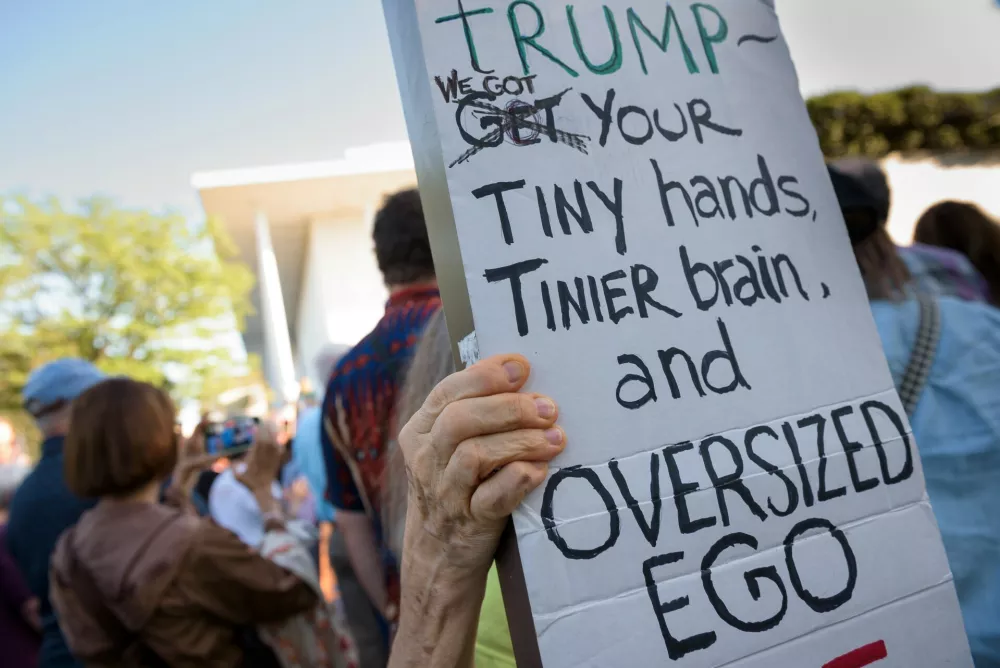 TRUMP~
WE GOT
GET YOUR
TINY hands,
TINIER brain,
and
OVERSIZED
EGO